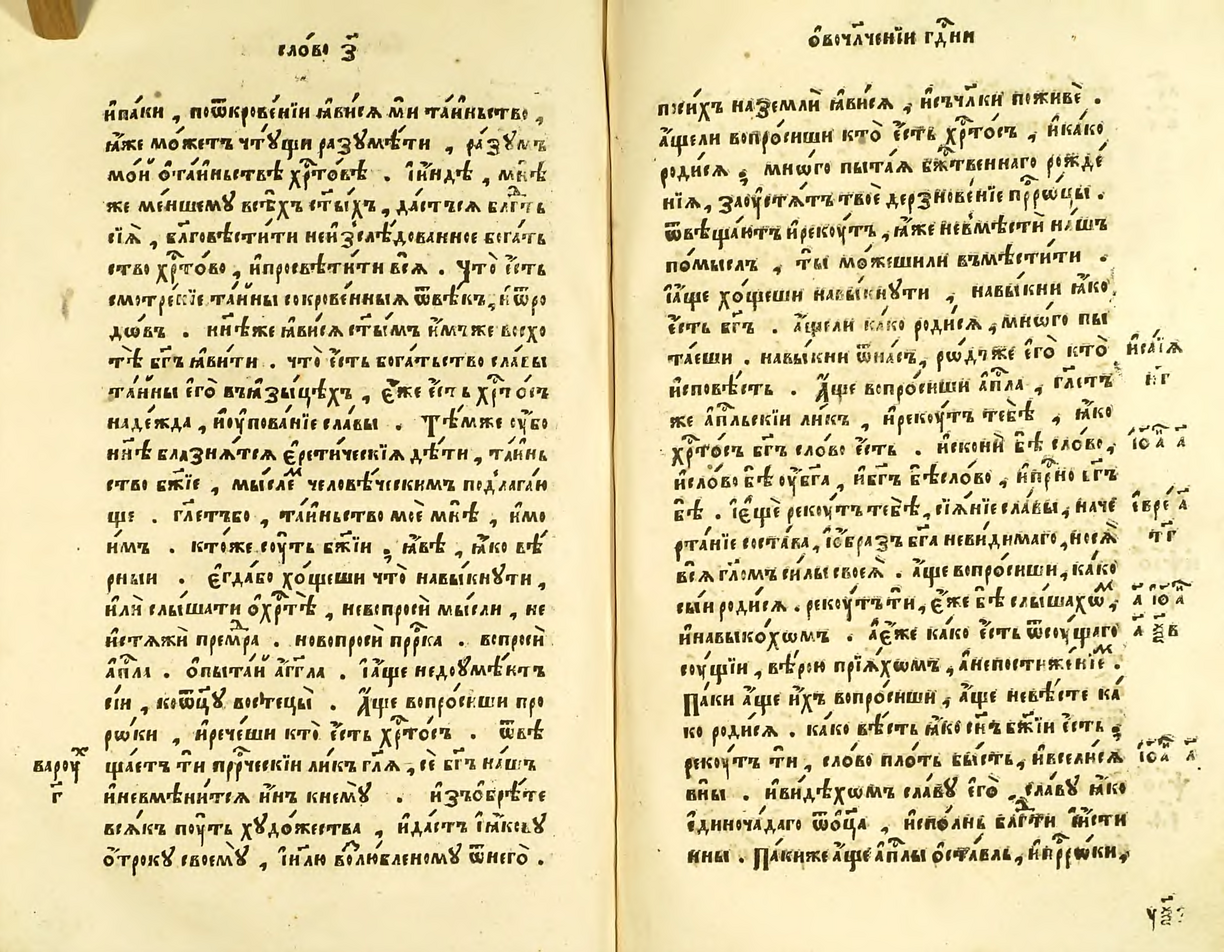 сло́во з҃
и҆па́ки , поѿкрове́нїи ꙗ҆ви́сѧ мѝ та́иньство ,
ꙗ҆́же мо́жетъ чтꙋ́щи разꙋмѣ́ти , ра́зꙋмъ
мо́й ѻ҆та́иньствѣ хрⷭ҇то́вѣ . і҆и҆ндѣ̀ , мнѣ́
же ме́ншемꙋ всѣ́хъ ст҃ы́хъ , да́стъсѧ блгⷣть
сїѧ̀ , бл҃говѣсти́ти неизслѣ́дованное бога́ть
ство хрⷭ҇то́во , и҆просвѣти́ти всѧ̀ . что̀ є҆́сть
смотре́нїе та́йны сокрове́нныѧ ѿвѣ́къ, и҆ѿро
до́въ . нн҃ѣже ꙗ҆ви́сѧ ст҃ы́мъ и҆мъже восхо
тѣ̀ бг҃ъ ꙗ҆ви́ти . что̀ є҆́сть бога́тьство сла́вы
та́йны є҆гѡ̀ въꙗ҆зы́цѣхъ , є҆́же є҆́сть хрⷭ҇то́съ
наде́жда , и҆ᲂу҆пова́нїе сла́вы . Тѣ́мже ᲂу҆́бо
нн҃ѣ блазнѧ́тсѧ є҆рети́ческїѧ дѣ́ти , та́инь
ство бж҃їе , мы́слеⷨ человѣ́ческимъ подлага́ю
ще . гл҃етъбо , та́иньство моѐ мнѣ̀ , и҆мо
и҆мъ . кто́же сꙋ́ть бж҃їи , ꙗ҆́вѣ , ꙗ҆́ко вѣ́
рнїи . Є҆гда́бо хо́щеши что̀ навы́кнꙋти ,
и҆лѝ слы́шати ѻ҆хрⷭ҇тѣ̀ , невопросѝ мы́сли , не
и҆стѧжѝ премⷣра . новопросѝ прⷪ҇ро́ка . вспросѝ
а҆пⷭ҇ла . ѻ҆пыта́й а҆́гг҃ла . і҆а҆́ще недоꙋмѣ́ютъ
сїи , коѿцꙋ̀ востецы̀ . А҆́ще вопро́сиши про
рѡ́ки , и҆рече́ши кто̀ є҆́сть хрⷭ҇то́съ . ѿвѣ
ща́етъ тѝ прⷪ҇ро́ческїй ли́къ гл҃ѧ , сѐ бг҃ъ на́шъ
и҆невмѣни́тсѧ и҆́нъ кнемꙋ̀ . и҆зъѡбрѣ́те
всѧ́къ пꙋ́ть хꙋдо́жества , и҆да́стъ і҆ꙗ́ковꙋ
ѻ҆́трокꙋ своемꙋ̀ , і҆и҆и҃лю возлю́бленомꙋ ѿнегѡ̀ .
варꙋⷯ
г҃
ѻ҆вочл҃че́нїи гдⷭ҇ни
психъ наземлѝ ꙗ҆ви́сѧ , и҆съчл҃ки поживѐ .
а҆́щели вопро́сиши кто̀ є҆́сть хрⷭ҇то́съ , и҆ка́ко
роди́сѧ , мно́го пыта́ѧ бжⷭ҇твеннаго рожде́
нїѧ , заꙋстѧ́тъ твоѐ дерзнове́нїе прⷪ҇ро́цы .
ѿвѣща́ютъ и҆рекꙋ́тъ , ꙗ҆́же невмѣстѝ на́шъ
по́мыслъ , ты̀ мо́жешили въмѣсти́ти .
і҆а҆́ще хо́щеши навы́кнꙋти , навы́кни ꙗ҆́ко
є҆́сть бг҃ъ . а҆́щели ка́ко роди́сѧ , мно́го пы
та́еши . навы́кни ѿна́съ , ро́дъже є҆гѡ̀ кто̀
и҆сповѣ́сть . А҆́ще вопро́сиши а҆пⷭ҇ла , гл҃етъ
же а҆пⷭ҇льскїи ли́къ , и҆рекꙋ́тъ тебѣ̀ , ꙗ҆́ко
хрⷭ҇то́съ бг҃ъ сло́во є҆́сть . и҆сконѝ бѣ̀ сло́во ,
и҆сло́во бѣ̀ ᲂу҆бг҃а , и҆бг҃ъ бѣ̀сло́во , и҆прⷭ҇но бг҃ъ
бѣ̀ . і҆є҆щѐ рекꙋ́тъ тебѣ̀ , сїѧ́нїе сла́вы , наче
рта́нїе соста́ва , і҆ѻ҆́бразъ бг҃а неви́димаго , носѧ̀
всѧ̀ гл҃омъ си́лы своеѧ̀ . а҆́ще вопро́сиши , ка́ко
сы́и роди́сѧ . рекꙋ́тъ тѝ , є҆́же бѣ̀ слы́шахоⷨ ,
и҆навыко́хомъ . а҆є҆́же ка́ко є҆́сть ѿсꙋ́щаго
сꙋ́щїи , вѣ́рою прїѧ́хомъ , а҆непостиже́нїеⷨ .
Па́ки а҆́ще и҆́хъ вопро́сиши , а҆́ще невѣ́сте ка́
ко роди́сѧ . ка́ко вѣ́сть ꙗ҆́ко сн҃ъ бж҃їи є҆́сть ,
рекꙋ́тъ тѝ , сло́во пло́ть бы́сть , и҆всели́сѧ
вны̀ . и҆ви́дѣхомъ сла́вꙋ є҆гѡ̀ , сла́вꙋ ꙗ҆́ко
є҆диноча́даго ѿѻ҆ц҃а̀ , и҆спо́лнь блгⷣти и҆и҆́сти
нны . Па́киже а҆́ще а҆пⷭ҇лы ѻ҆ста́вль , и҆прⷪ҇ро́ки ,
и҆са́їѧ
н҃г
і҆ѻ҆а҃ а҃
є҆вре́ а҃
т҃г
а҃ і҆ѻ҆а҃
і҆ѻ҆а҃ а҃